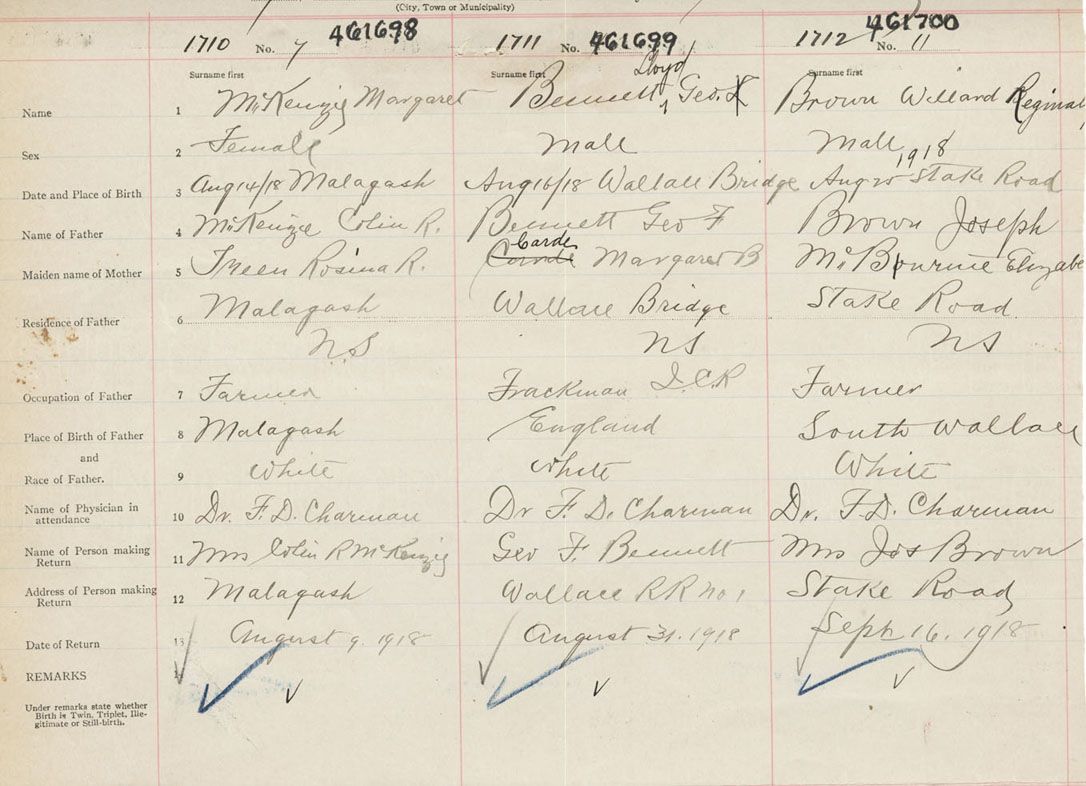 (City, Town or Municipality)
1710 No. 7 461698
1711 No. 461699
1712 No. 11 461700
Surname first Surname first Surname first
Name 1 McKenzie Margaret Bennett Lloyd Geo. Brown Willard Reginal
Sex 2 Female Male Male
Date and Place of Birth 3 Aug 14/18 Malagash Aug 16/18 Wallace Bridge Aug 25 1918 Stake Road
Name of Father 4 McKenzie Colin R. Bennett Geo F Brown Joseph
Maiden name of Mother 5 Treen Rosina R. Carde Margaret B Elizabe
Residence of Father 6 Malagash Wallace Bridge Stake Road
N.S NS NS
Occupation of Father 7 Farmer Trackman I.C.R Farmer
Place of Birth of Father 8 Malagash England South Wallace
and
Race of Father. 9 White White White
Name of Physician in
attendance 10 Dr. F. D. Charman Dr F. D. Charman Dr. F. D. Charman
Name of Person making
Return 11 Mrs Colin R McKenzie Geo F. Bennett Mrs Jos Brown
Address of Person making
Return 12 Malagash Wallace RR No 1 Stake Road
Date of Return 13 August 9. 1918 August 31. 1918 Sept 16. 1918
REMARKS
Under remarks state whether
Birth is Twin, Triplet, Ille-
gitimate or Still-birth.